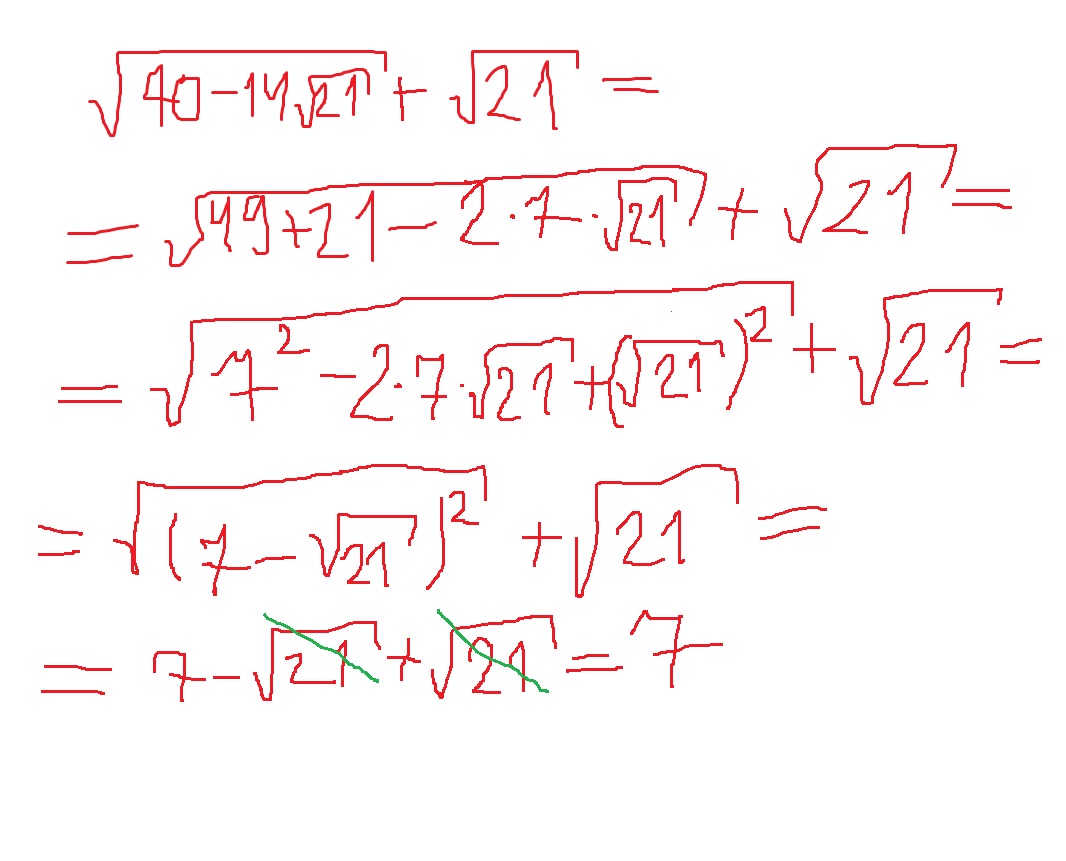 √(40-14√21) + √21 =
= √(49+21-2·7·√21) + √21 =
= √(7²-2·7·√21+(√21)²) + √21 =
= √((7-√21)²) + √21 =
= 7-√21+√21 = 7